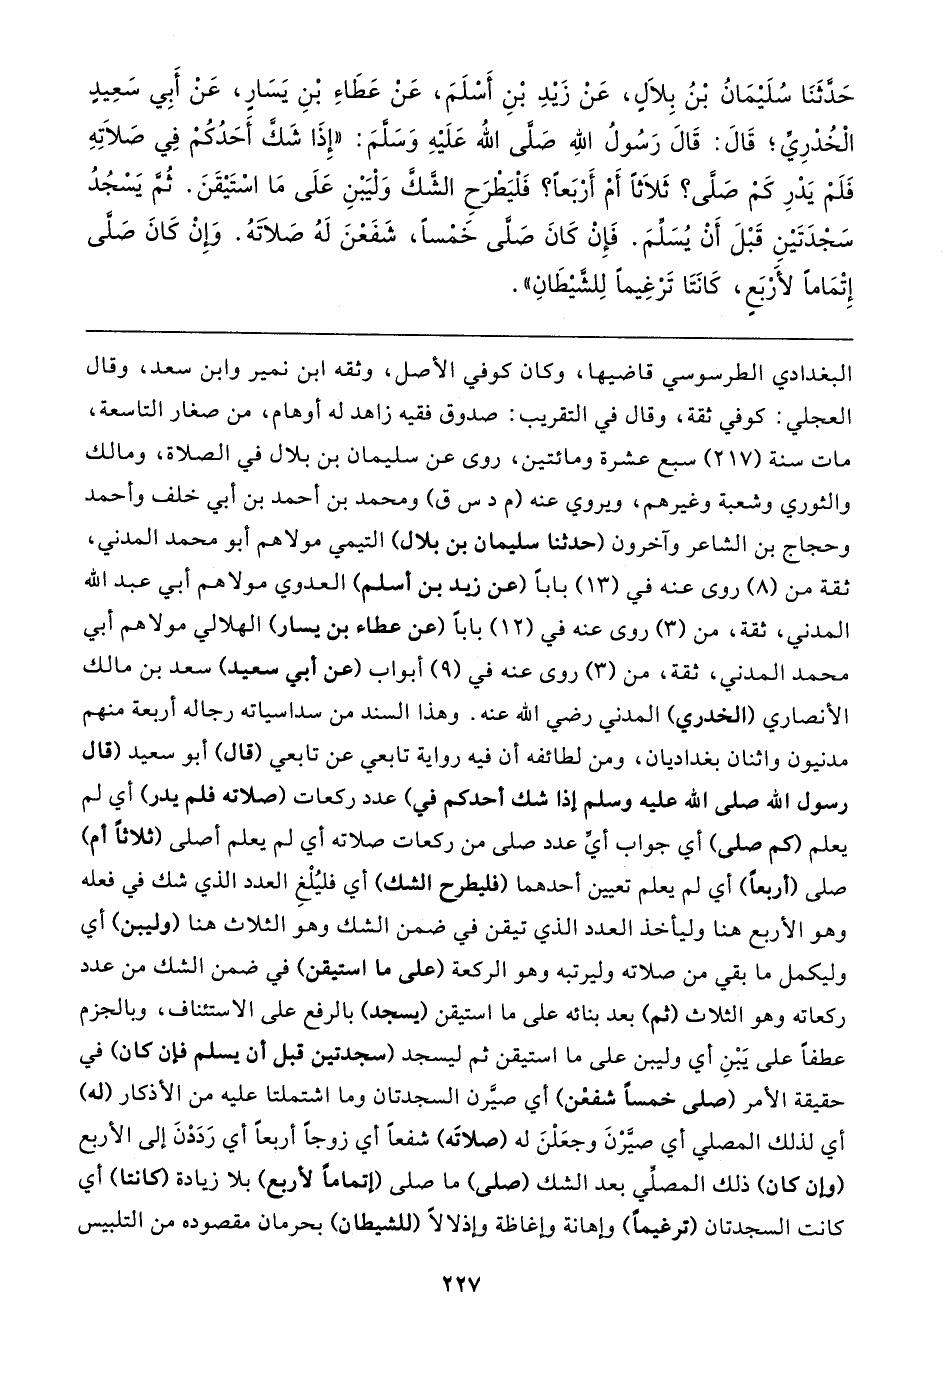 حَدَّثَنَا سُلَيْمَانُ بْنُ بِلَالٍ، عَنْ زَيْدِ بْنِ أَسْلَمَ، عَنْ عَطَاءِ بْنِ يَسَارٍ، عَنْ أَبِي سَعِيدٍ
الْخُدْرِيِّ؛ قَالَ: قَالَ رَسُولُ اللهِ صَلَّى اللهُ عَلَيْهِ وَسَلَّمَ: «إِذَا شَكَّ أَحَدُكُمْ فِي صَلَاتِهِ
فَلَمْ يَدْرِ كَمْ صَلَّى؟ ثَلَاثاً أَمْ أَرْبَعاً؟ فَلْيَطْرَحِ الشَّكَّ وَلْيَبْنِ عَلَى مَا اسْتَيْقَنَ. ثُمَّ يَسْجُدُ
سَجْدَتَيْنِ قَبْلَ أَنْ يُسَلِّمَ. فَإِنْ كَانَ صَلَّى خَمْساً، شَفَعْنَ لَهُ صَلَاتَهُ. وَإِنْ كَانَ صَلَّى
إِتْمَاماً لأَرْبَعٍ، كَانَتَا تَرْغِيماً لِلشَّيْطَانِ».
البغدادي الطرسوسي قاضيها، وكان كوفي الأصل، وثقه ابن نمير وابن سعد، وقال
العجلي: كوفي ثقة، وقال في التقريب: صدوق فقيه زاهد له أوهام، من صغار التاسعة،
مات سنة (٢١٧) سبع عشرة ومائتين، روى عن سليمان بن بلال في الصلاة، ومالك
والثوري وشعبة وغيرهم، ويروي عنه (م د س ق) ومحمد بن أحمد بن أبي خلف وأحمد
وحجاج بن الشاعر وآخرون (حدثنا سليمان بن بلال) التيمي مولاهم أبو محمد المدني،
ثقة من (٨) روى عنه في (١٣) باباً (عن زيد بن أسلم) العدوي مولاهم أبي عبد الله
المدني، ثقة، من (٣) روى عنه في (١٢) باباً (عن عطاء بن يسار) الهلالي مولاهم أبي
محمد المدني، ثقة، من (٣) روى عنه في (٩) أبواب (عن أبي سعيد) سعد بن مالك
الأنصاري (الخدري) المدني رضي الله عنه. وهذا السند من سداسياته رجاله أربعة منهم
مدنيون واثنان بغداديان، ومن لطائفه أن فيه رواية تابعي عن تابعي (قال) أبو سعيد (قال
رسول الله صلى الله عليه وسلم إذا شك أحدكم في) عدد ركعات (صلاته فلم يدر) أي لم
يعلم (كم صلى) أي جواب أيِّ عدد صلى من ركعات صلاته أي لم يعلم أصلى (ثلاثاً أم)
صلى (أربعاً) أي لم يعلم تعيين أحدهما (فليطرح الشك) أي فليُلْغِ العدد الذي شك في فعله
وهو الأربع هنا وليأخذ العدد الذي تيقن في ضمن الشك وهو الثلاث هنا (وليبن) أي
وليكمل ما بقي من صلاته وليرتبه وهو الركعة (على ما استيقن) في ضمن الشك من عدد
ركعاته وهو الثلاث (ثم) بعد بنائه على ما استيقن (يسجد) بالرفع على الاستئناف، وبالجزم
عطفاً على يَبْنِ أي وليبن على ما استيقن ثم ليسجد (سجدتين قبل أن يسلم فإن كان) في
حقيقة الأمر (صلى خمساً شفعْن) أي صيَّرن السجدتان وما اشتملتا عليه من الأذكار (له)
أي لذلك المصلي أي صيَّرْنَ وجعَلْنَ له (صلاتَه) شفعاً أي زوجاً أربعاً أي رَدَدْنَ إلى الأربع
(وإن كان) ذلك المصلِّي بعد الشك (صلى) ما صلى (إتماماً لأربع) بلا زيادة (كانتا) أي
كانت السجدتان (ترغيماً) وإهانة وإغاظة وإذلالاً (للشيطان) بحرمان مقصوده من التلبيس
٢٢٧